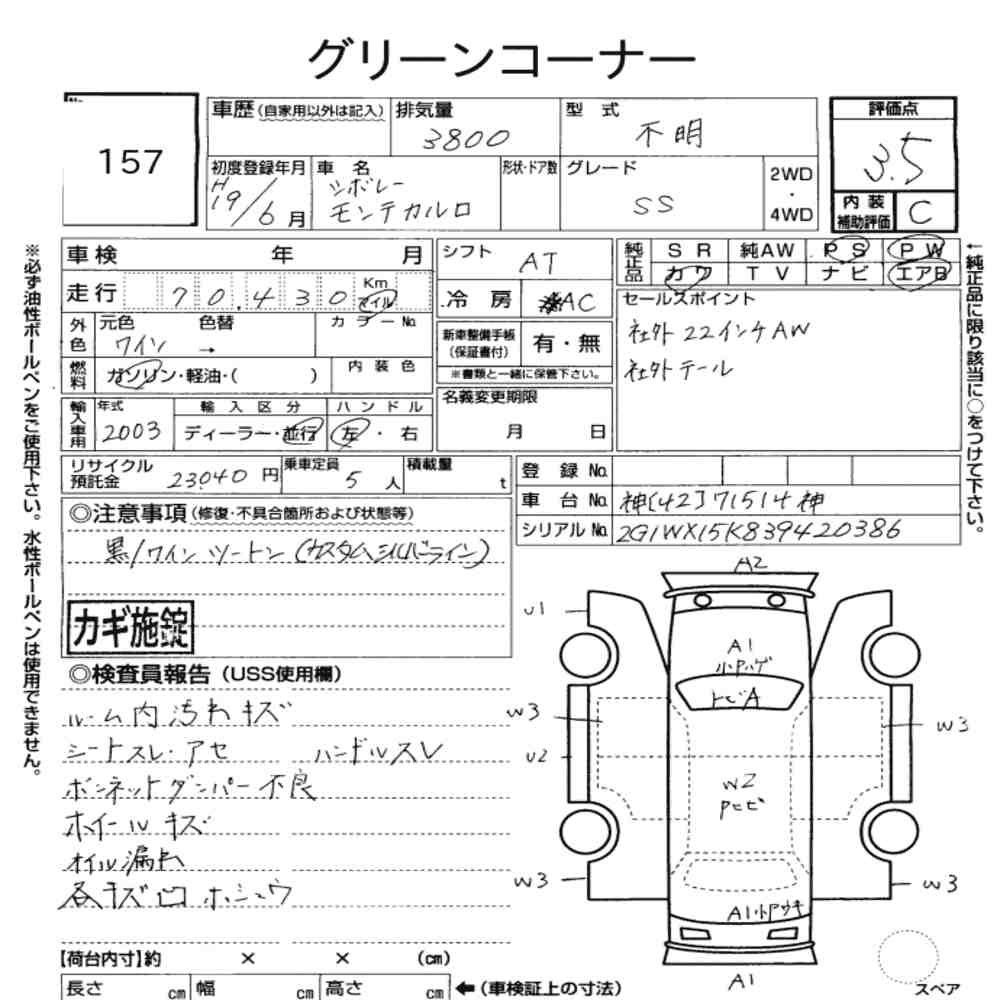 グリーンコーナー
157
車歴(自家用以外は記入) 排気量 型式 評価点
3800 不明 3.5
初度登録年月 車名 形状・ドア数 グレード 2WD・4WD 内装補助評価 C
H19/6月 シボレー モンテカルロ SS
車検 年 月 シフト AT 純正品 SR 純AW PS PW
カワ TV ナビ エアB
走行 70,430 Km マイル 冷房 AC セールスポイント
社外22インチAW
社外テール
外色 元色 色替 カラーNo. 新車整備手帳(保証書付) 有・無
ワイン →
※書類と一緒に保管下さい。
燃料 ガソリン・軽油・( ) 内装色
名義変更期限
月 日
輸入車用 年式 輸入区分 ハンドル
2003 ディーラー・並行 左・右
リサイクル預託金 23040円 乗車定員 5人 積載量 t 登録No.
車台No. 神[42]71514神
シリアルNo. 2G1WX15K839420386
◎注意事項(修復・不具合箇所および状態等)
黒/ワイン ツートン(カスタムシルバーライン)
カギ施錠
◎検査員報告(USS使用欄)
ルーム内汚れキズ
シートスレ・アセ ハンドルスレ
ボンネットダンパー不良
ホイールキズ
オイル漏れ
各キズ凹 ホシュウ
【荷台内寸】約 × × (cm)
長さ cm 幅 cm 高さ cm ←(車検証上の寸法)
A2
U1
A1
小Pハゲ
トビA
W3
W3
U2
W2
Pヒビ
W3
W3
A1小Pウキ
A1
スペア
※必ず油性ボールペンをご使用下さい。水性ボールペンは使用できません。
←純正品に限り該当に○をつけて下さい。